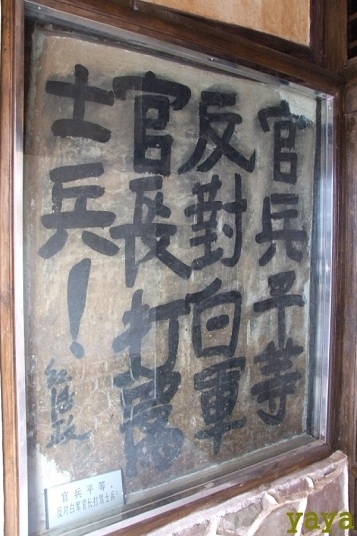 官兵平等
反對白軍
官長打罵
士兵！
紅陽政
官兵平等，
反对白军官长打骂士兵！
yaya